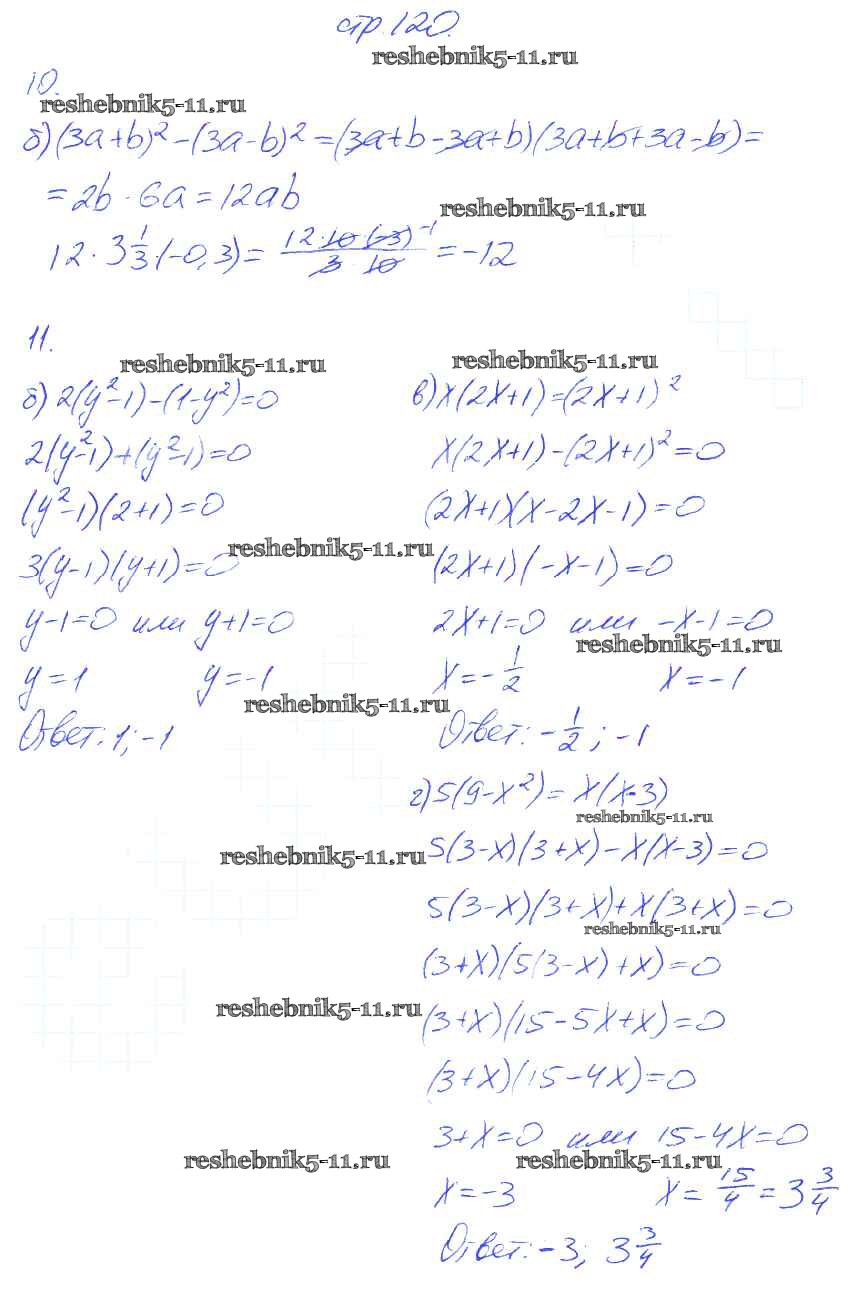 стр. 120.
reshebnik5-11.ru
10.
reshebnik5-11.ru
б) (3a+b)²-(3a-b)²=(3a+b-3a+b)(3a+b+3a-b)=
=2b·6a=12ab
reshebnik5-11.ru
12·3 1/3·(-0,3)= 12·10·(-3)⁻¹/3·10 =-12
11.
reshebnik5-11.ru
б) 2(y²-1)-(1-y²)=0
2(y²-1)+(y²-1)=0
(y²-1)(2+1)=0
reshebnik5-11.ru
3(y-1)(y+1)=0
y-1=0 или y+1=0
y=1 y=-1
reshebnik5-11.ru
Ответ: 1; -1
reshebnik5-11.ru
в) x(2x+1)=(2x+1)²
x(2x+1)-(2x+1)²=0
(2x+1)(x-2x-1)=0
(2x+1)(-x-1)=0
2x+1=0 или -x-1=0
reshebnik5-11.ru
x=-1/2 x=-1
Ответ: -1/2; -1
г) 5(9-x²)=x(x-3)
reshebnik5-11.ru
reshebnik5-11.ru
5(3-x)(3+x)-x(x-3)=0
5(3-x)(3+x)+x(3+x)=0
reshebnik5-11.ru
(3+x)(5(3-x)+x)=0
reshebnik5-11.ru
(3+x)(15-5x+x)=0
(3+x)(15-4x)=0
3+x=0 или 15-4x=0
reshebnik5-11.ru
reshebnik5-11.ru
x=-3 x=15/4=3 3/4
Ответ: -3; 3 3/4